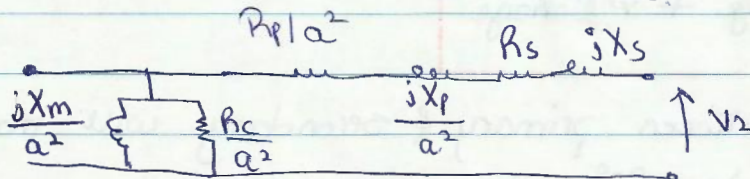 Rp/a²
Rs jXs
jXm/a² Rc/a² jXp/a² V2